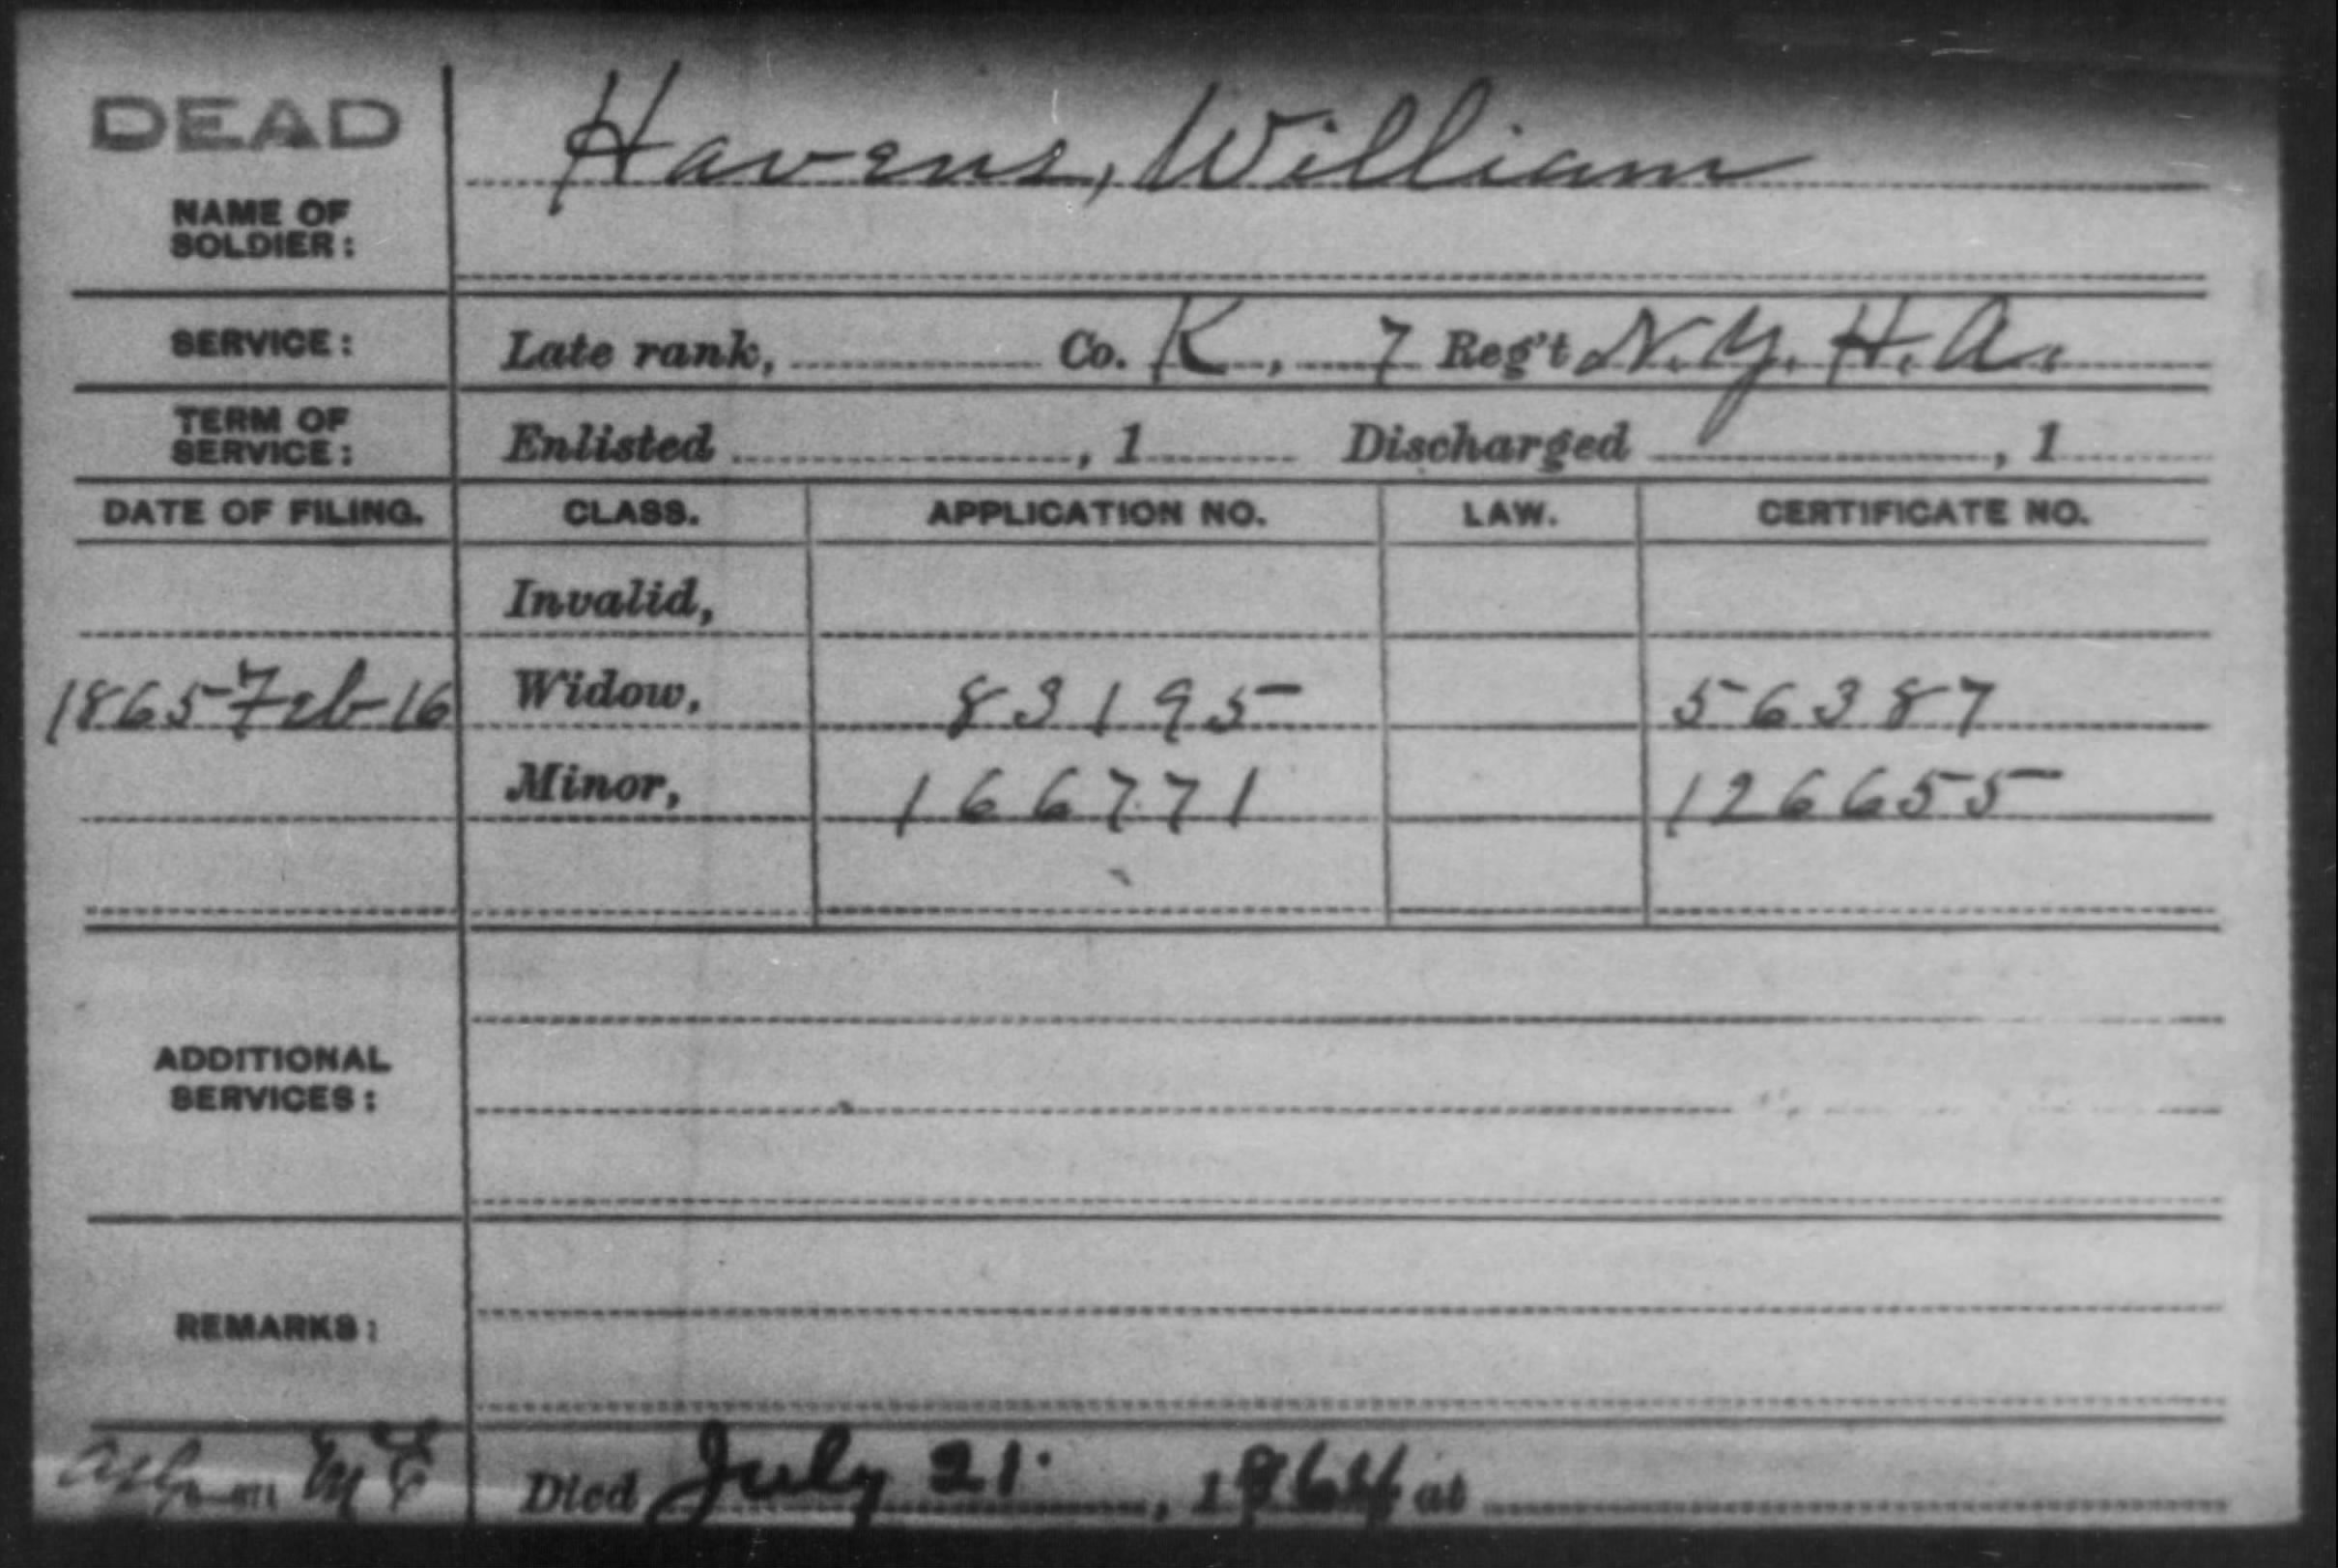 DEAD
Havens, William
NAME OF
SOLDIER:
SERVICE: Late rank, Co. K, 7 Reg't N.Y. H.A.
TERM OF
SERVICE: Enlisted , 1 Discharged , 1
DATE OF FILING. CLASS. APPLICATION NO. LAW. CERTIFICATE NO.
Invalid,
1865 Feb 16 Widow, 83195 56387
Minor, 166771 126655
ADDITIONAL
SERVICES:
REMARKS:
Died July 21, 1864 at